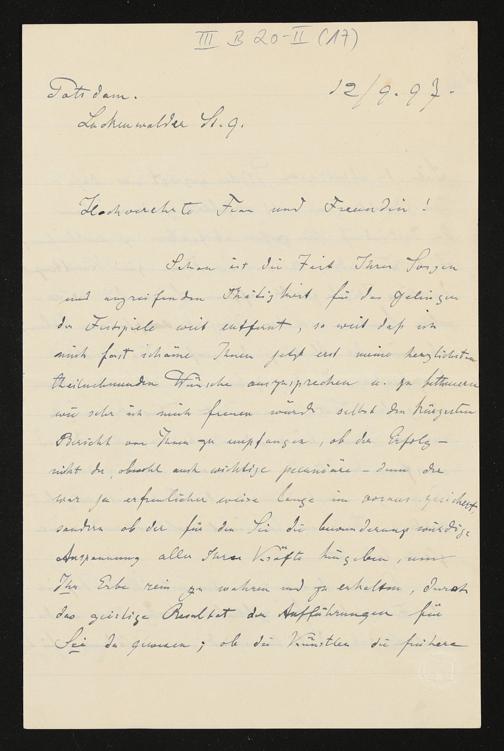 III B 20-II (17)
Potsdam. 12/9.97.
Luckenwalder St. 9.
Hochverehrte Frau und Freundin!
Schon ist die Zeit Ihrer Sorgen
und angreifenden Thätigkeit für das Gelingen
der Festspiele weit entfernt, so weit daß ich
mich fast schäme Ihnen jetzt erst meine herzlichsten
theilnehmenden Wünsche auszusprechen u. zu beteuern
wie sehr ich mich freuen würde selbst den kürzesten
Bericht von Ihnen zu empfangen, ob der Erfolg –
nicht der, obwohl auch wichtige pecuniäre – denn der
war ja erfreulicher weise lange im voraus gesichert
sondern ob der für den Sie die bewunderungswürdige
Anspannung aller Ihrer Kräfte hingeben, um
Ihr Erbe rein zu wahren und zu erhalten, durch
das geistige Resultat der Aufführungen für
Sie da gewesen; ob die Künstler die frühere